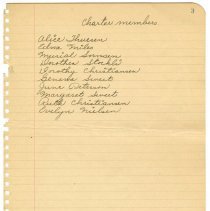 3
Charter members
Alice Thuesen
Alma Miles
Muriel Sorensen
Dorothea Stockle
Dorothy Christiansen
Geneva Sweet
June Petersen
Margaret Sweet
Ruth Christiansen
Evelyn Nielsen